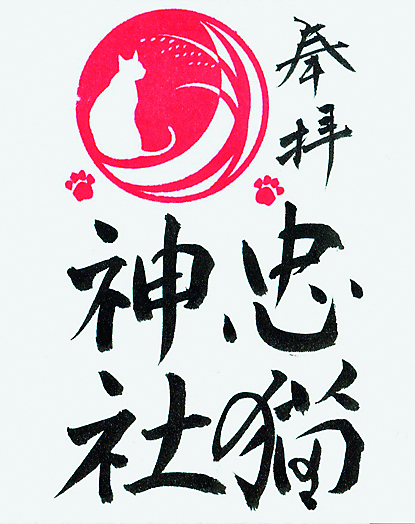 奉拝
忠猫
神社